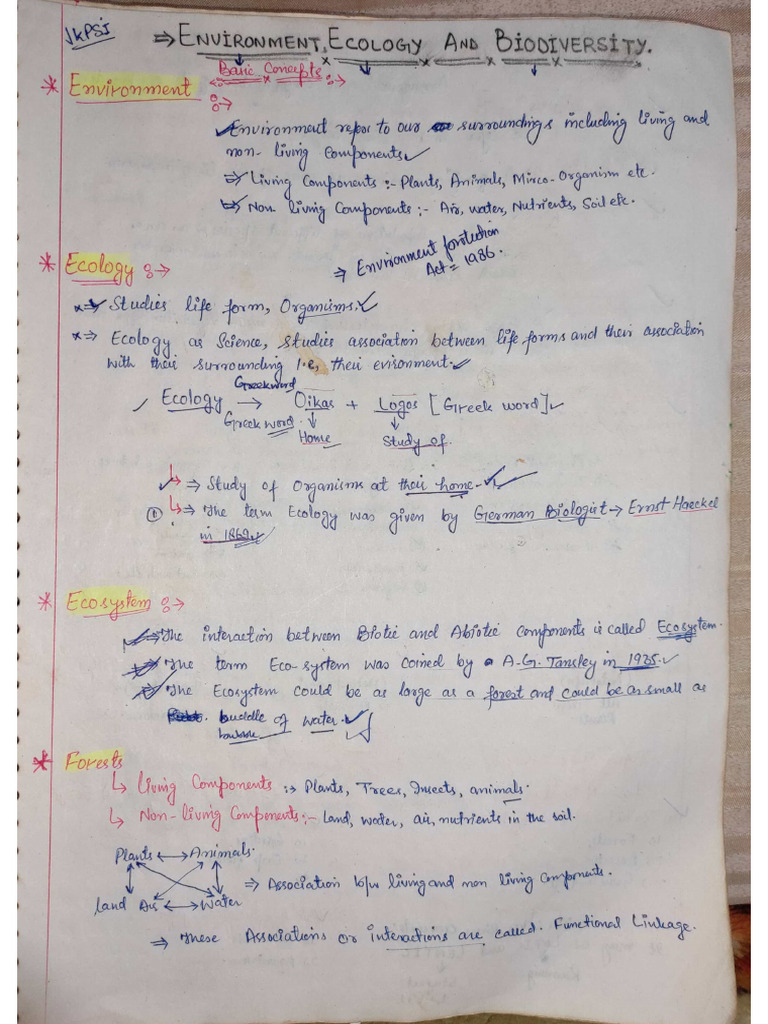 JKPSI
⇒ ENVIRONMENT, ECOLOGY AND BIODIVERSITY.
Basic Concepts
* Environment
Environment refer to our surroundings including living and
non-living Components.
⇒ Living Components :- Plants, Animals, Mirco-Organism etc.
⇒ Non living Components :- Air, water, Nutrients, Soil etc.
⇒ Envrionment protection
Act = 1986.
* Ecology :→
⇒ Studies life form, Organisms.
⇒ Ecology as Science, studies association between life forms and their association
with their surrounding i.e, their evironment.
Greek word
Ecology → Oikas + Logos [Greek word]
Greek word
Home Study of.
⇒ Study of Organisms at their home.
① ⇒ The term Ecology was given by German Biologist → Ernst Haeckel
in 1869.
* Ecosystem :→
⇒ The interaction between Biotic and Abiotic Components is called Ecosystem.
⇒ The term Eco-system was coined by A.G. Tansley in 1935.
⇒ The Ecosystem could be as large as a forest and could be as small as
buddle of water.
* Forests
↳ Living Components :→ Plants, Trees, Insects, animals.
↳ Non-living Components :- Land, water, air, nutrients in the soil.
Plants ↔ Animals.
⇒ Association b/w living and non living components.
land Air ↔ Water
⇒ These Associations or interactions are called. Functional Linkage.